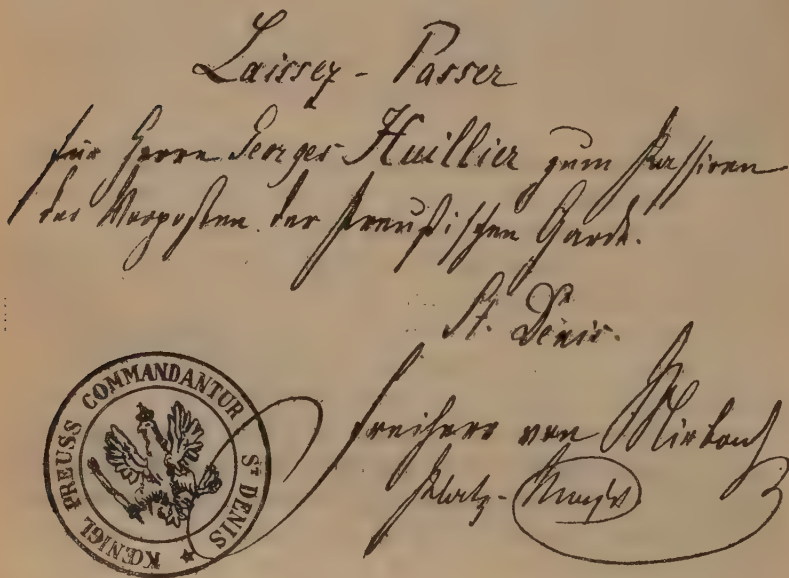 Laissez - Passer
für Herrn Georges Huillier zum Passiren
der Vorposten der Preußischen Garde.
St. Denis.
Freiherr von Mirbach
Platz-Major
KŒNIGL PREUSS COMMANDANTUR ST DENIS